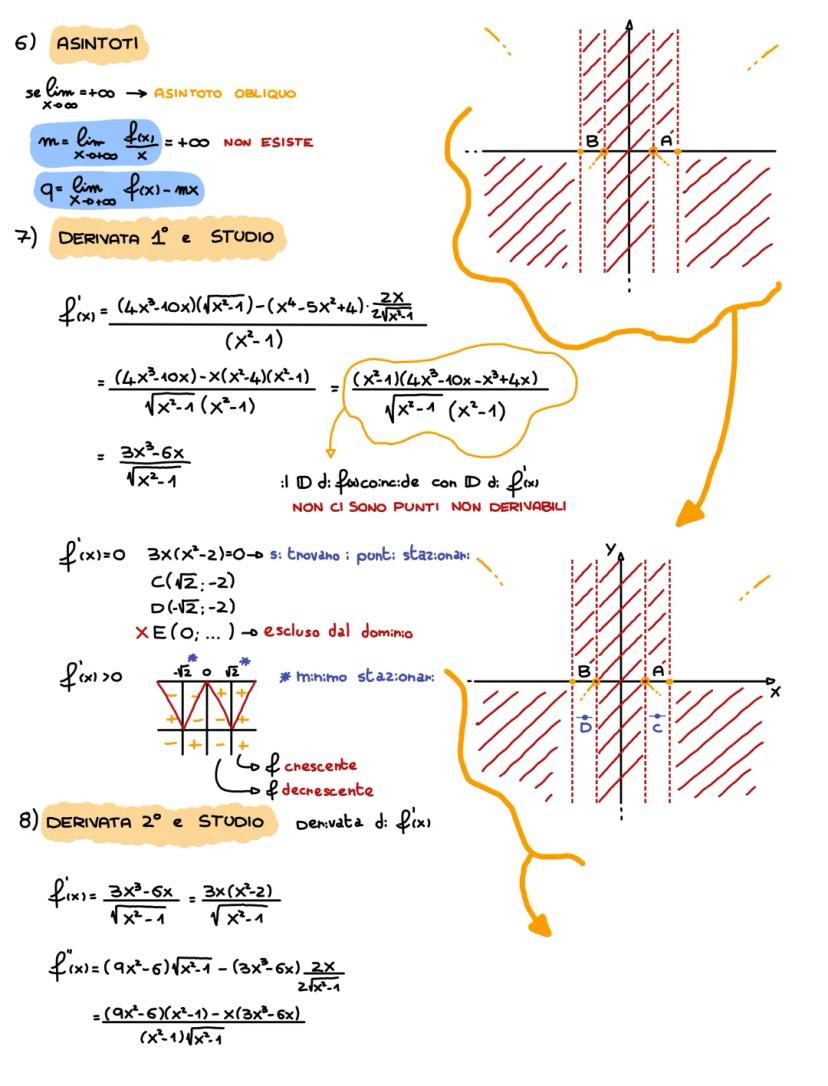 6) ASINTOTI
se lim = +∞ → ASINTOTO OBLIQUO
x→∞
m = lim f(x)/x = +∞ NON ESISTE
x→+∞
q = lim f(x) - mx
x→+∞
B A
7) DERIVATA 1° e STUDIO
f'(x) = ((4x³-10x)(√(x²-1)) - (x⁴-5x²+4)· 2x/(2√(x²-1))) / (x²-1)
= ((4x³-10x) - x(x²-4)(x²-1)) / (√(x²-1) (x²-1)) = ((x²-1)(4x³-10x-x³+4x)) / (√(x²-1) (x²-1))
= (3x³-6x) / √(x²-1)
il D di f(x) coincide con D di f'(x)
NON CI SONO PUNTI NON DERIVABILI
f'(x)=0 3x(x²-2)=0 → si trovano i punti stazionari
C(√2;-2)
D(-√2;-2)
X E(0; ...) → escluso dal dominio
f'(x)>0 -√2 * 0 √2 * * minimo stazionari
- - + +
+ - - +
- + - +
f crescente
f decrescente
Y
B A
X
D C
8) DERIVATA 2° e STUDIO Derivata di f'(x)
f'(x) = (3x³-6x) / √(x²-1) = 3x(x²-2) / √(x²-1)
f''(x) = (9x²-6)√(x²-1) - (3x³-6x) 2x/(2√(x²-1))
= ((9x²-6)(x²-1) - x(3x³-6x)) / ((x²-1)√(x²-1))